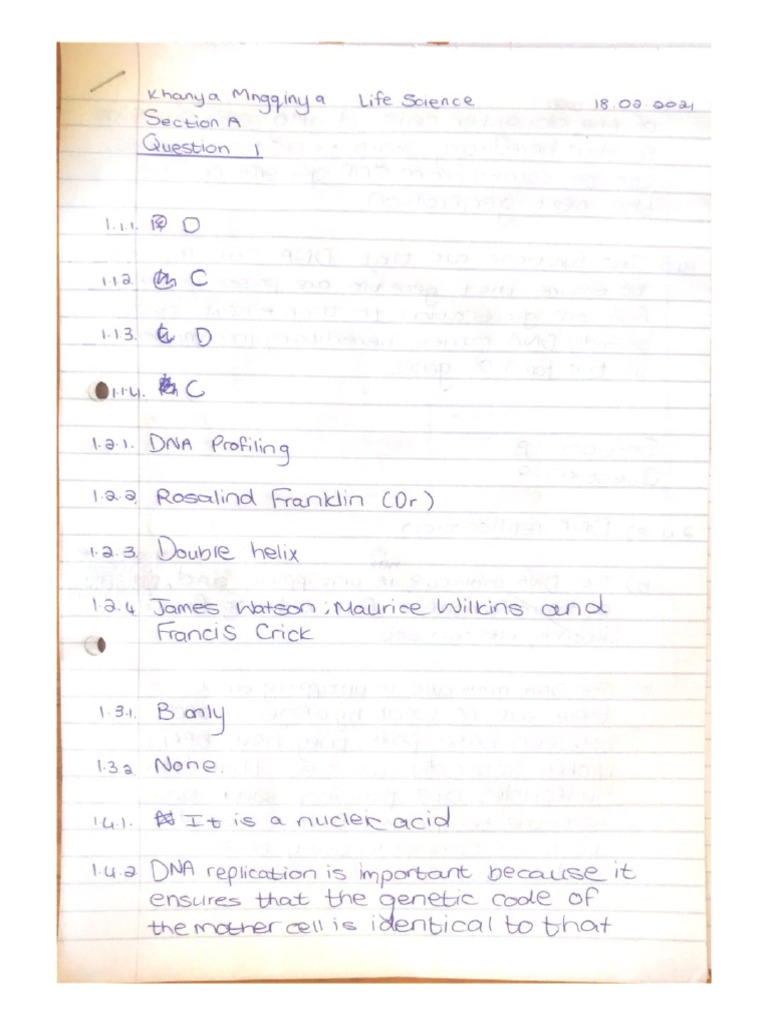 Khanya Mngqinya Life Science 18.02.2021
Section A
Question 1
1.1.1. D
1.1.2. C
1.1.3. D
1.1.4. C
1.2.1. DNA Profiling
1.2.2. Rosalind Franklin (Dr)
1.2.3. Double helix
1.2.4 James Watson, Maurice Wilkins and
Francis Crick
1.3.1. B only
1.3.2 None.
1.4.1. It is a nucleic acid
1.4.2 DNA replication is important because it
ensures that the genetic code of
the mother cell is identical to that